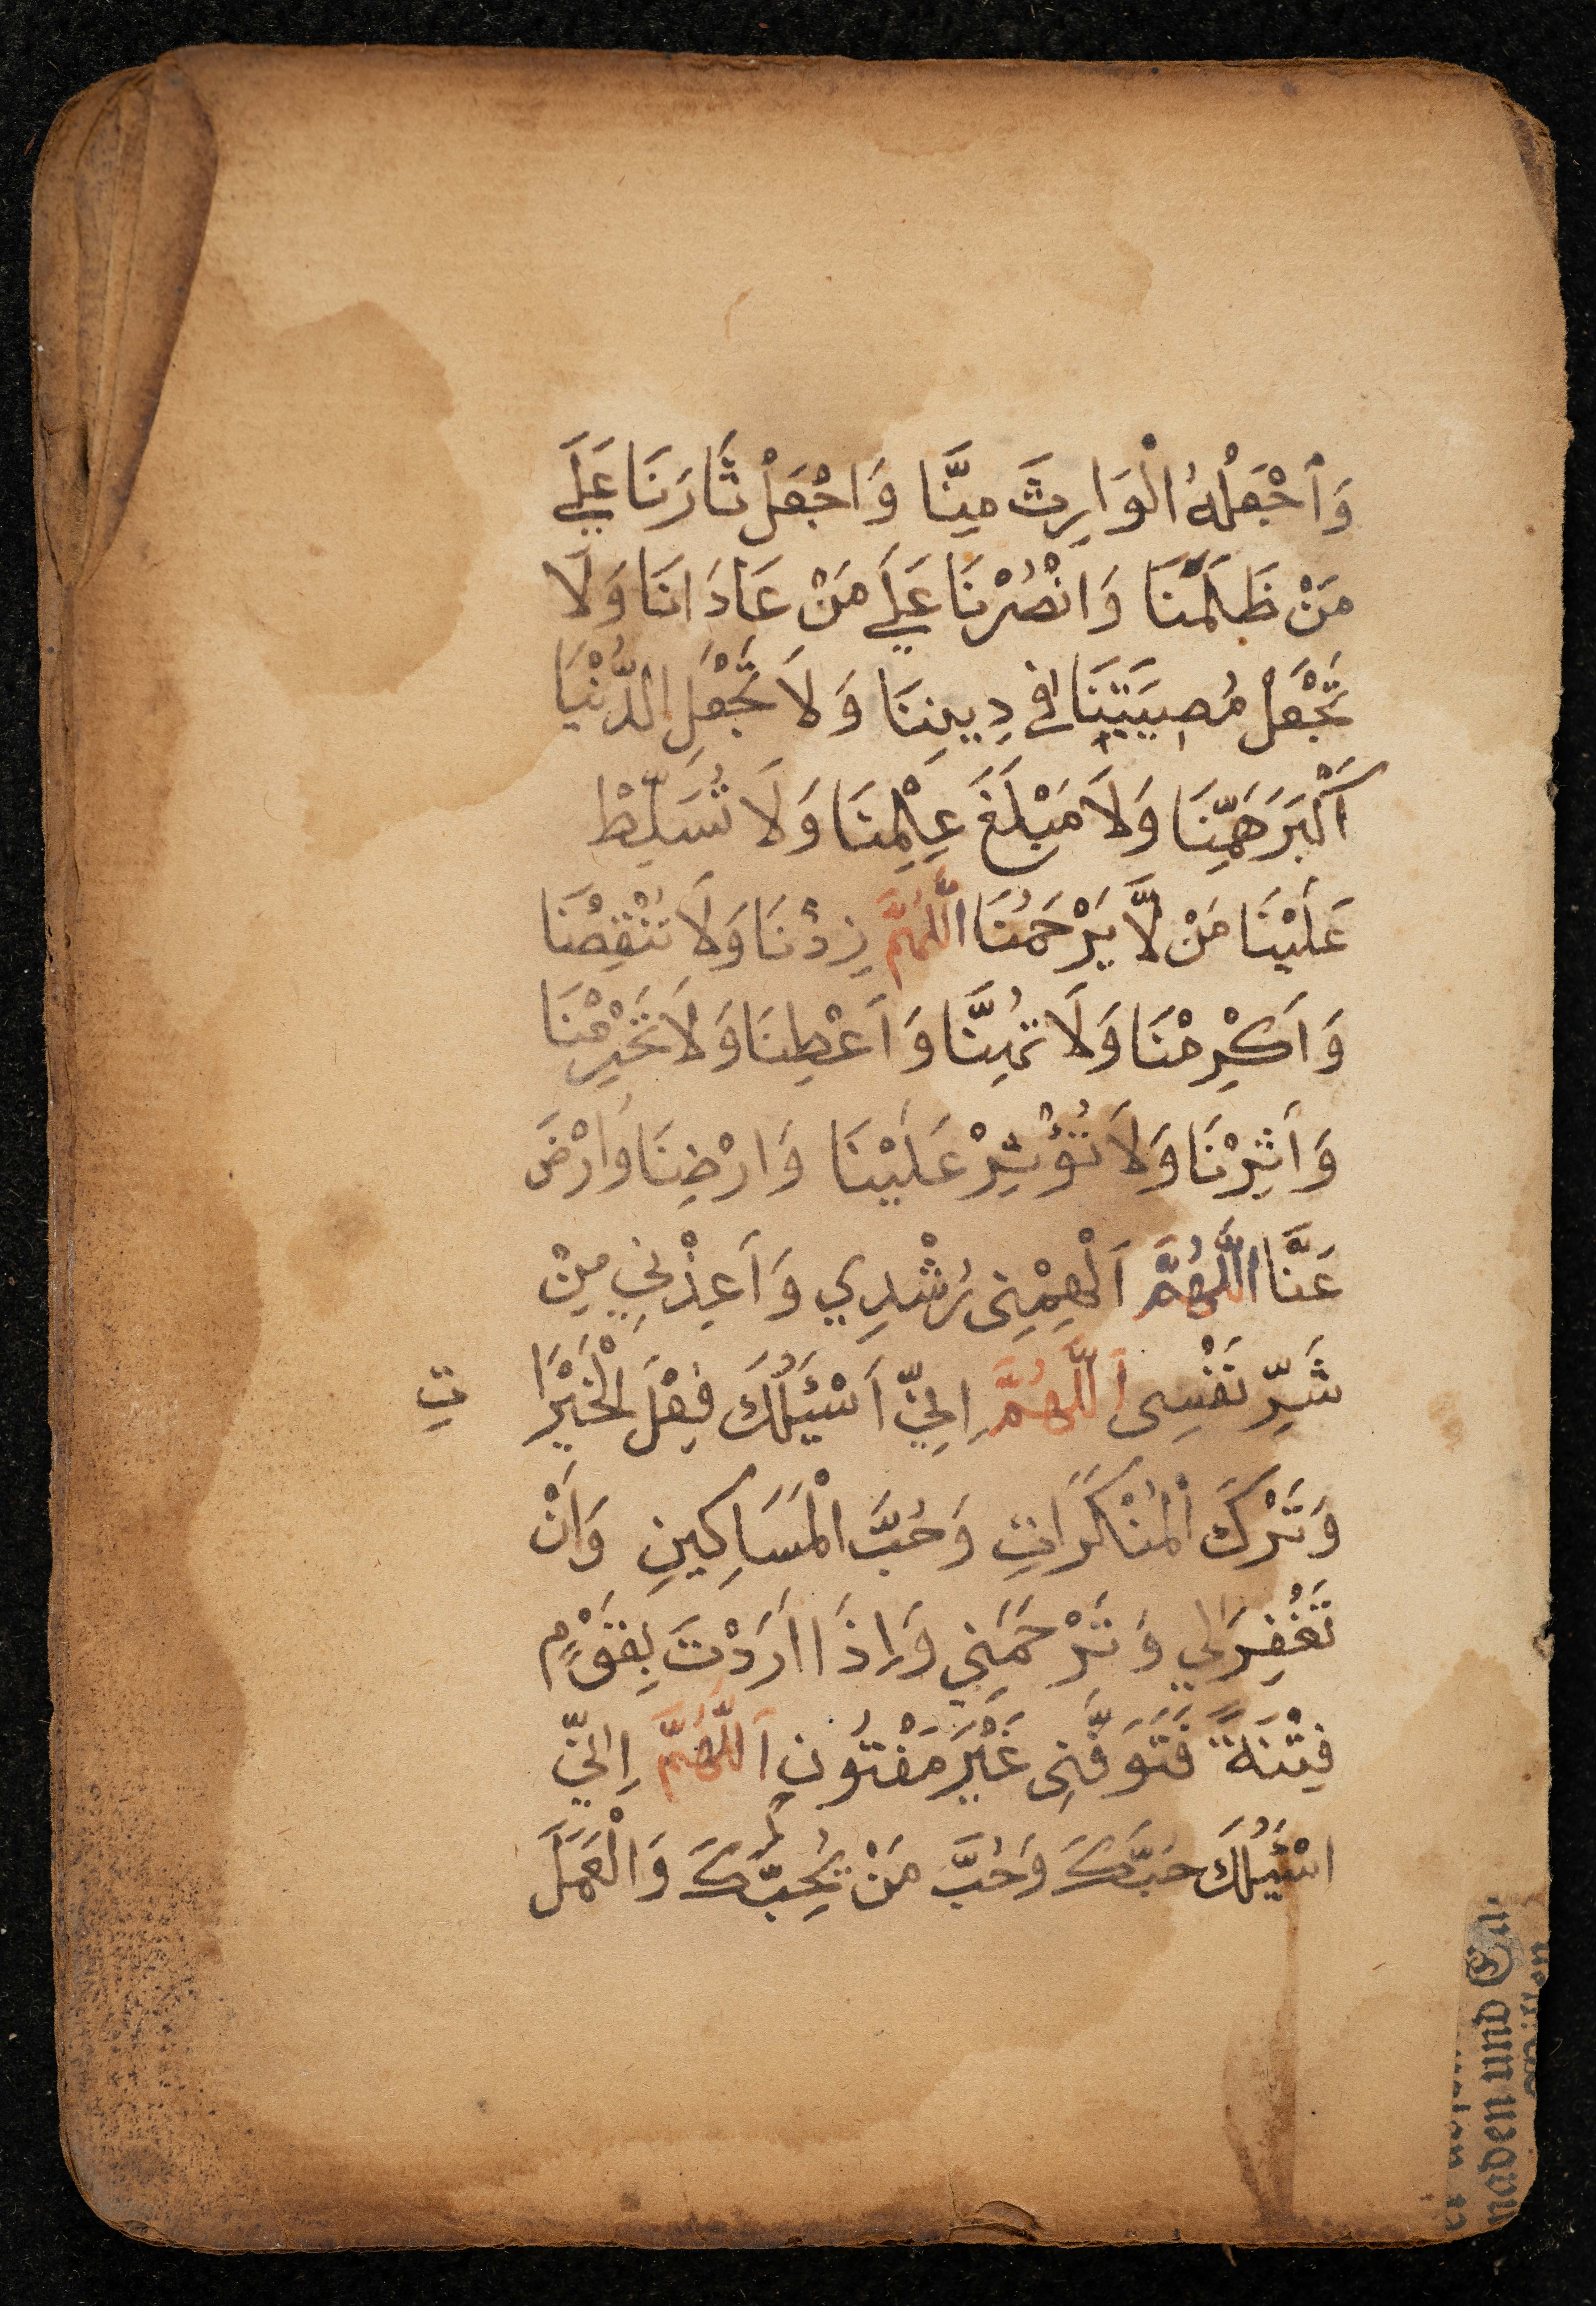 وَاجْعَلْهُ الْوَارِثَ مِنَّا وَاجْعَلْ ثَارَنَا عَلَي
مَنْ ظَلَمَنَا وَانْصُرْنَا عَلَي مَنْ عَادَانَا وَلَا
تَجْعَلْ مُصِيبَتَنَا فِي دِينِنَا وَلَا تَجْعَلِ الدُّنْيَا
اَكْبَرَ هَمِّنَا وَلَا مَبْلَغَ عِلْمِنَا وَلَا تُسَلِّطْ
عَلَيْنَا مَنْ لَّا يَرْحَمُنَا اللَّهُمَّ زِدْنَا وَلَا تَنْقُصْنَا
وَاَكْرِمْنَا وَلَا تُهِنَّا وَاَعْطِنَا وَلَا تَحْرِمْنَا
وَاَثِرْنَا وَلَا تُؤْثِرْ عَلَيْنَا وَارْضِنَا وَارْضَ
عَنَّا اللَّهُمَّ اَلْهِمْنِى رُشْدِي وَاَعِذْنِي مِنْ
شَرِّ نَفْسِى اَللَّهُمَّ اِنِّي اَسْئَلُكَ فِعْلَ الْخَيْرَا تِ
وَتَرْكَ الْمُنْكَرَاتِ وَحُبَّ الْمَسَاكِينِ وَاَنْ
تَغْفِرَلِي وَتَرْحَمَنِي وَاِذَا اَرَدْتَ بِقَوْمٍ
فِتْنَةً فَتَوَفَّنِى غَيْرَ مَفْتُونٍ اَللَّهُمَّ اِنِّي
اسْئَلُكَ حُبَّكَ وَحُبَّ مَنْ يُحِبُّكَ وَالْعَمَلَ
naden und